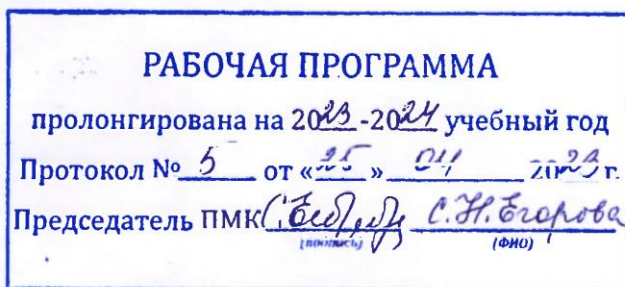 РАБОЧАЯ ПРОГРАММА
пролонгирована на 2023-2024 учебный год
Протокол № 5 от «25» 04 2023 г.
Председатель ПМК С.Н. Егорова
(подпись) (ФИО)